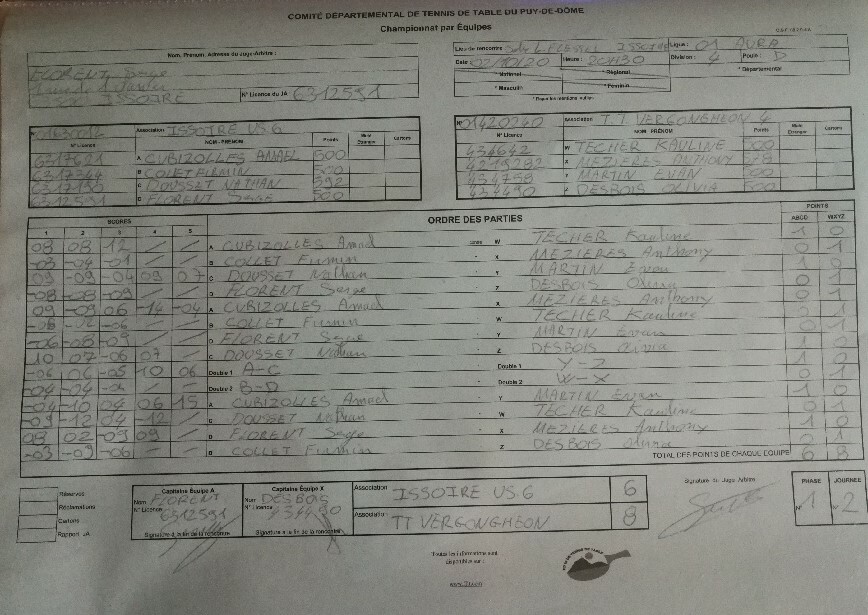 COMITÉ DÉPARTEMENTAL DE TENNIS DE TABLE DU PUY-DE-DÔME
Championnat par Équipes
Nom, Prénom, Adresse du Juge-Arbitre :
FLORENT Serge
ISSOIRE
N° Licence du JA 6312591
Lieu de rencontre ISSOIRE Ligue : 01 AURA
Date : 02/10/20 Heure : 20H30 Division : 4 Poule : D
* National * Régional * Départemental
* Masculin * Féminin
Association ISSOIRE US 6
N°Licence NOM - PRÉNOM Points Cartons
6317621 A CUBIZOLLES AMAEL 500
6317344 B COLLET FIRMIN 500
6317190 C DOUSSET NATHAN 592
6312591 D FLORENT Serge 500
N° 01420240 Association T.T VERGONGHEON 4
N° Licence NOM PRÉNOM Points Cartons
434642 W TECHER KAULINE 500
4219282 X MEZIERES ANTHONY 518
434758 Y MARTIN EVAN 500
434490 Z DESBOIS OLIVIA 500
SCORES ORDRE DES PARTIES POINTS
1 2 3 4 5 ABCD WXYZ
08 08 12 / / A CUBIZOLLES Amael contre W TECHER Kauline 1 0
-03 -04 -01 / / B COLLET Firmin X MEZIERES Anthony 0 1
09 -09 -04 09 07 C DOUSSET Nathan Y MARTIN Evan 1 0
-08 -08 -09 / / D FLORENT Serge Z DESBOIS Olivia 0 1
09 -09 06 -14 -04 A CUBIZOLLES Amael X MEZIERES Anthony 0 1
B COLLET Firmin W TECHER Kauline 0 1
-06 -08 -09 / / D FLORENT Serge Y MARTIN Evan 0 1
10 07 -06 07 / C DOUSSET Nathan Z DESBOIS Olivia 1 0
-06 06 -05 10 06 Double 1 A-C Double 1 Y-Z 1 0
Double 2 B-D Double 2 W-X 0 1
-04 -10 04 06 15 A CUBIZOLLES Amael Y MARTIN Evan 1 0
-09 -12 04 -12 / C DOUSSET Nathan W TECHER Kauline 0 1
08 02 -09 09 / D FLORENT Serge X MEZIERES Anthony 1 0
-03 -09 -06 / / B COLLET Firmin Z DESBOIS Olivia 0 1
TOTAL DES POINTS DE CHAQUE ÉQUIPE 6 8
Réserves
Réclamations
Cartons
Rapport JA
Capitaine Équipe A
Nom FLORENT
N° Licence 6312591
Signature à la fin de la rencontre
Capitaine Équipe X
Nom DESBOIS
N° Licence 434490
Signature à la fin de la rencontre
Association ISSOIRE US 6 6
Association TT VERGONGHEON 8
Signature du Juge Arbitre
PHASE N° 1
JOURNÉE N° 2
Toutes les informations sont
disponibles sur :